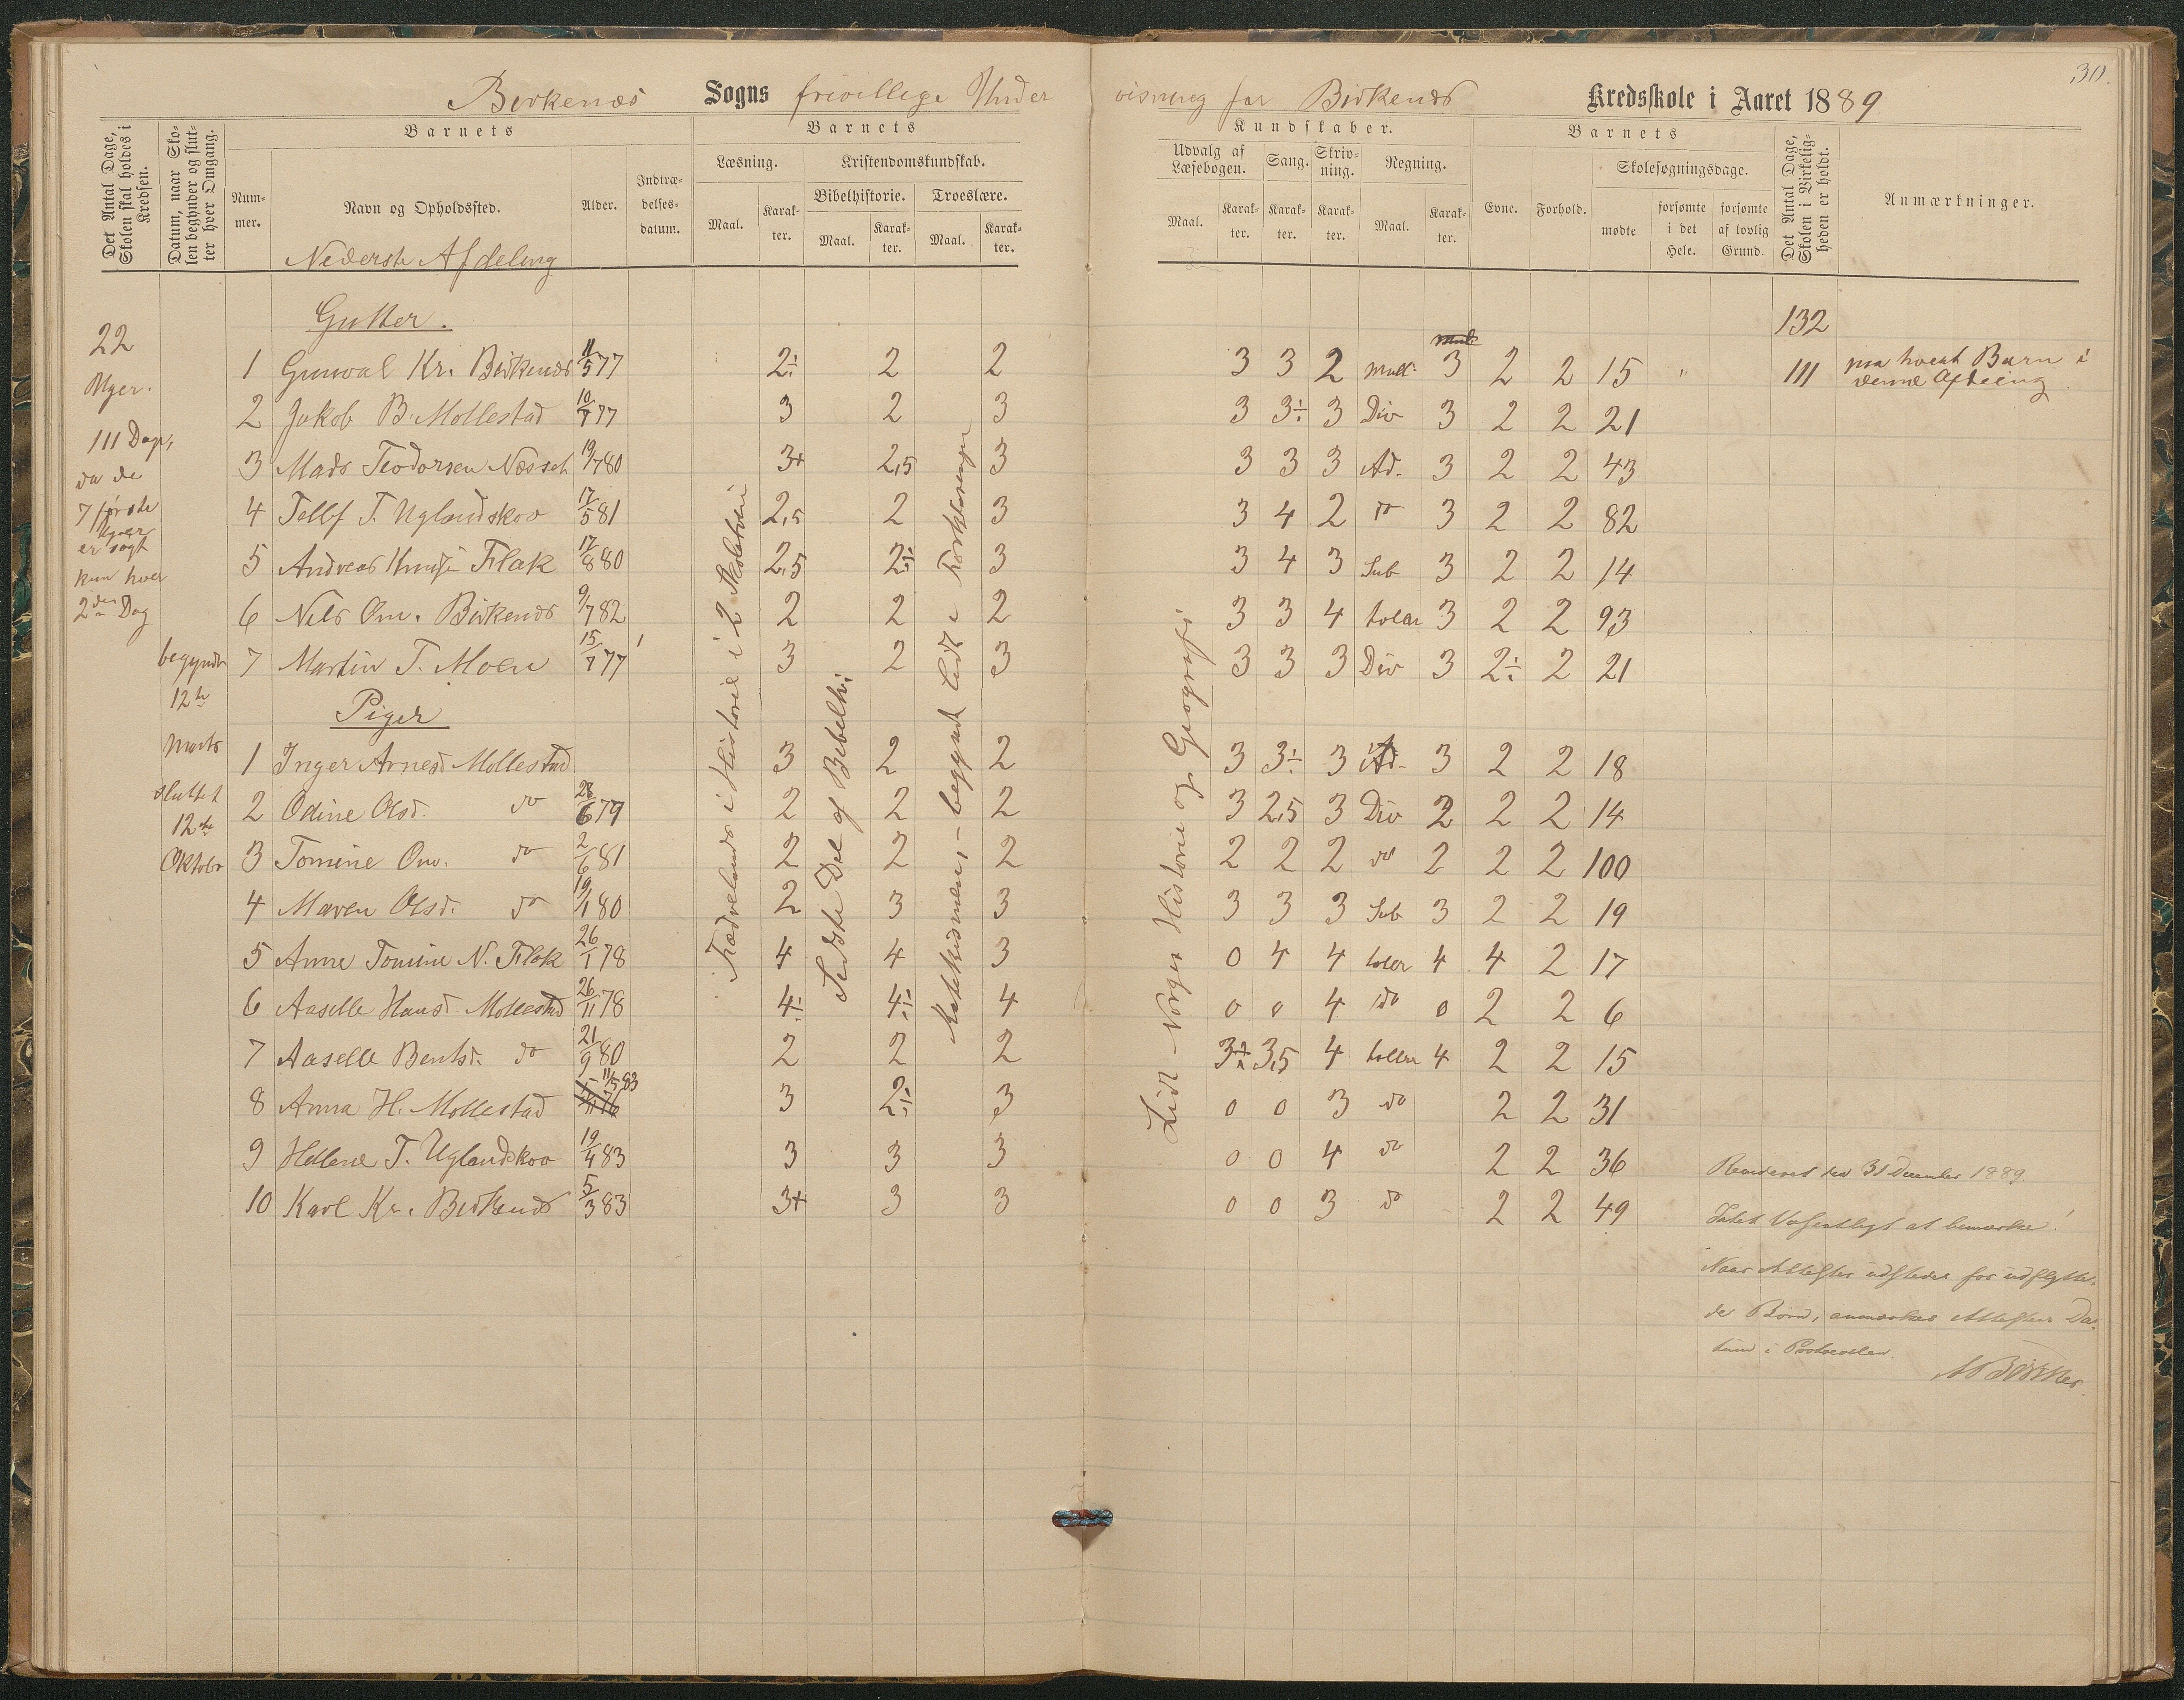 30.
Birkenæs Sogns frivillige Under visning for Birkenæs Kredsskole i Aaret 1889
Det Antal Dage, Skolen skal holdes i Kredsen.
Datum, naar Skolen begynder og slutter hver Omgang.
Barnets
Nummer.
Navn og Opholdssted.
Alder.
Indtrædelsesdatum.
Barnets
Læsning.
Maal.
Karakter.
Kristendomskundskab.
Bibelhistorie.
Maal.
Karakter.
Troeslære.
Maal.
Karakter.
Kundskaber.
Udvalg af Læsebogen.
Maal.
Karakter.
Sang.
Karakter.
Skrivning.
Karakter.
Regning.
Maal.
Karakter.
Barnets
Evne.
Forhold.
Skolesøgningsdage.
mødte
forsømte i det Hele.
forsømte af lovlig Grund.
Det Antal Dage, Skolen i Virkeligheden er holdt.
Anmærkninger.
Nederste Afdeling
Gutter.
132
22
Uger.
111 Dage,
da de
7 første
Uger
er søgt
kun hver
2den Dag
begyndt
12te
Marts
sluttet
12te
Oktober
1 Gunval Kr. Birkenæs 11/5 77 2÷ 2 2 3 3 2 Mult. 3 2 2 15 " 111 paa hvert Barn i denne Afdeling
2 Jakob B. Mollestad 10/7 77 3 2 3 3 3÷ 3 Div 3 2 2 21
3 Mads Teodorsen Næsset 19/7 80 3+ 2,5 3 3 3 3 Ad. 3 2 2 43
4 Tellef T. Uglandskov 17/5 81 2,5 2 3 3 4 2 do 3 2 2 82
5 Andreas Knudsen Flak 17/8 80 2,5 2÷ 3 3 4 3 Sub 3 2 2 14
6 Nils Om. Birkenæs 9/7 82 2 2 2 3 3 4 3 2 2 93
7 Martin T. Moen 15/7 77 3 2 3 3 3 3 Div 3 2÷ 2 21
Piger
1 Inger Arnesd Mollestad 3 2 2 3 3÷ 3 Ad. 3 2 2 18
2 Odine Olsd. do 28/6 79 2 2 2 3 2,5 3 Div 2 2 2 14
3 Tomine Om. do 2/6 81 2 2 2 2 2 2 do 2 2 2 100
4 Maren Olsd. do 19/1 80 2 3 3 3 3 3 Sub 3 2 2 19
5 Anne Tomine N. Flak 26/1 78 4 4 3 0 4 4 4 4 2 17
6 Aaselle Hansd. Mollestad 26/11 78 4÷ 4÷ 4 0 0 4 do 0 2 2 6
7 Aaselle Bentsd. do 21/9 80 2 2 2 3÷ 3,5 4 4 2 2 15
8 Anna H. Mollestad 11/5 83 3 2÷ 3 0 0 3 do 2 2 31
9 Hellene T. Uglandskov 19/4 83 3 3 3 0 0 4 do 2 2 36
10 Karl Kr. Birkenæs 5/3 83 3+ 3 3 0 0 3 do 2 2 49
Fædrelands i Historie i 2 Skoletrin
Sidste Del af Bibelhi.
Katekismen, - begyndt lidt i Forklaringen
Lidt Norges Historie og Geografi
Revideret den 31 December 1889.
Intet Væsentligt at bemærke!
Naar Attester udstedes for udflytte-
de Børn, anmærkes Attestens Da-
tum i Protocollen.